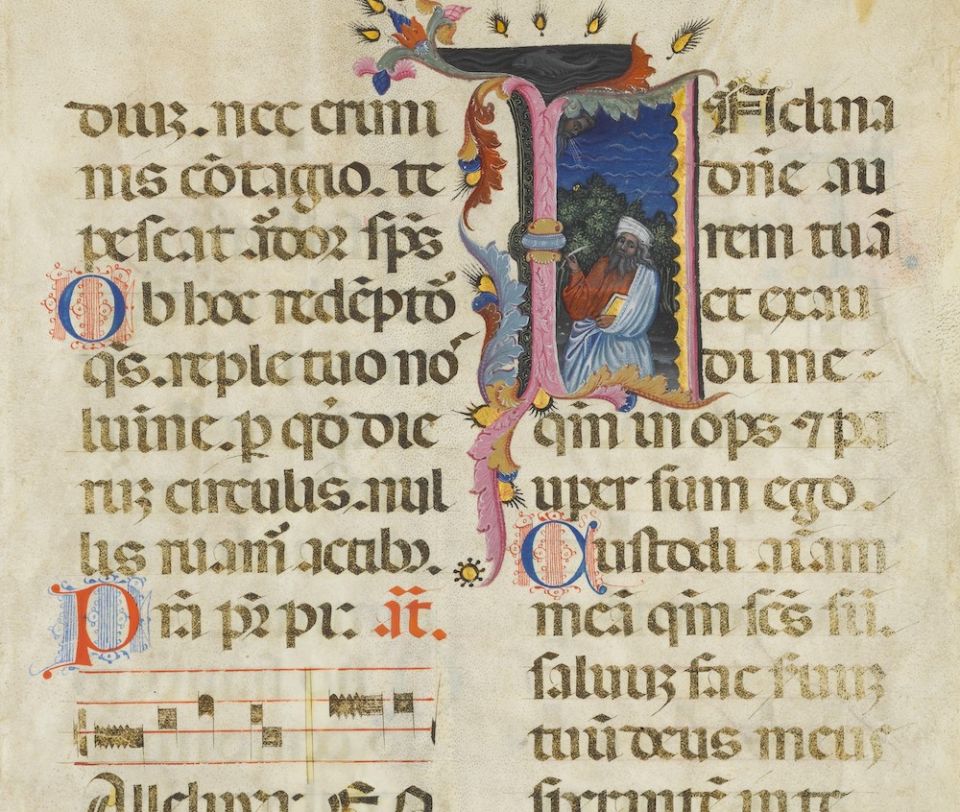 diuiꝫ. nec crimi
nis cōtagio. te
pescat ādor sp̄s
Ob hoc redēptō
q̄s. reple tuo nō
luīne. ꝑ qō die
ruꝫ circulis. nul
lis ruam̄ actibꝫ.
Prā pr̄ pi: āt.
Alleluya: E
clina
dn̄e au
rem tuā
et exau
di me:
qm̄ in ops ⁊ pa
uper sum ego.
Custodi aīam
meā qm̄ scs̄ sū.
saluuꝫ fac suuꝫ
tuū deus meus
sperantē in te